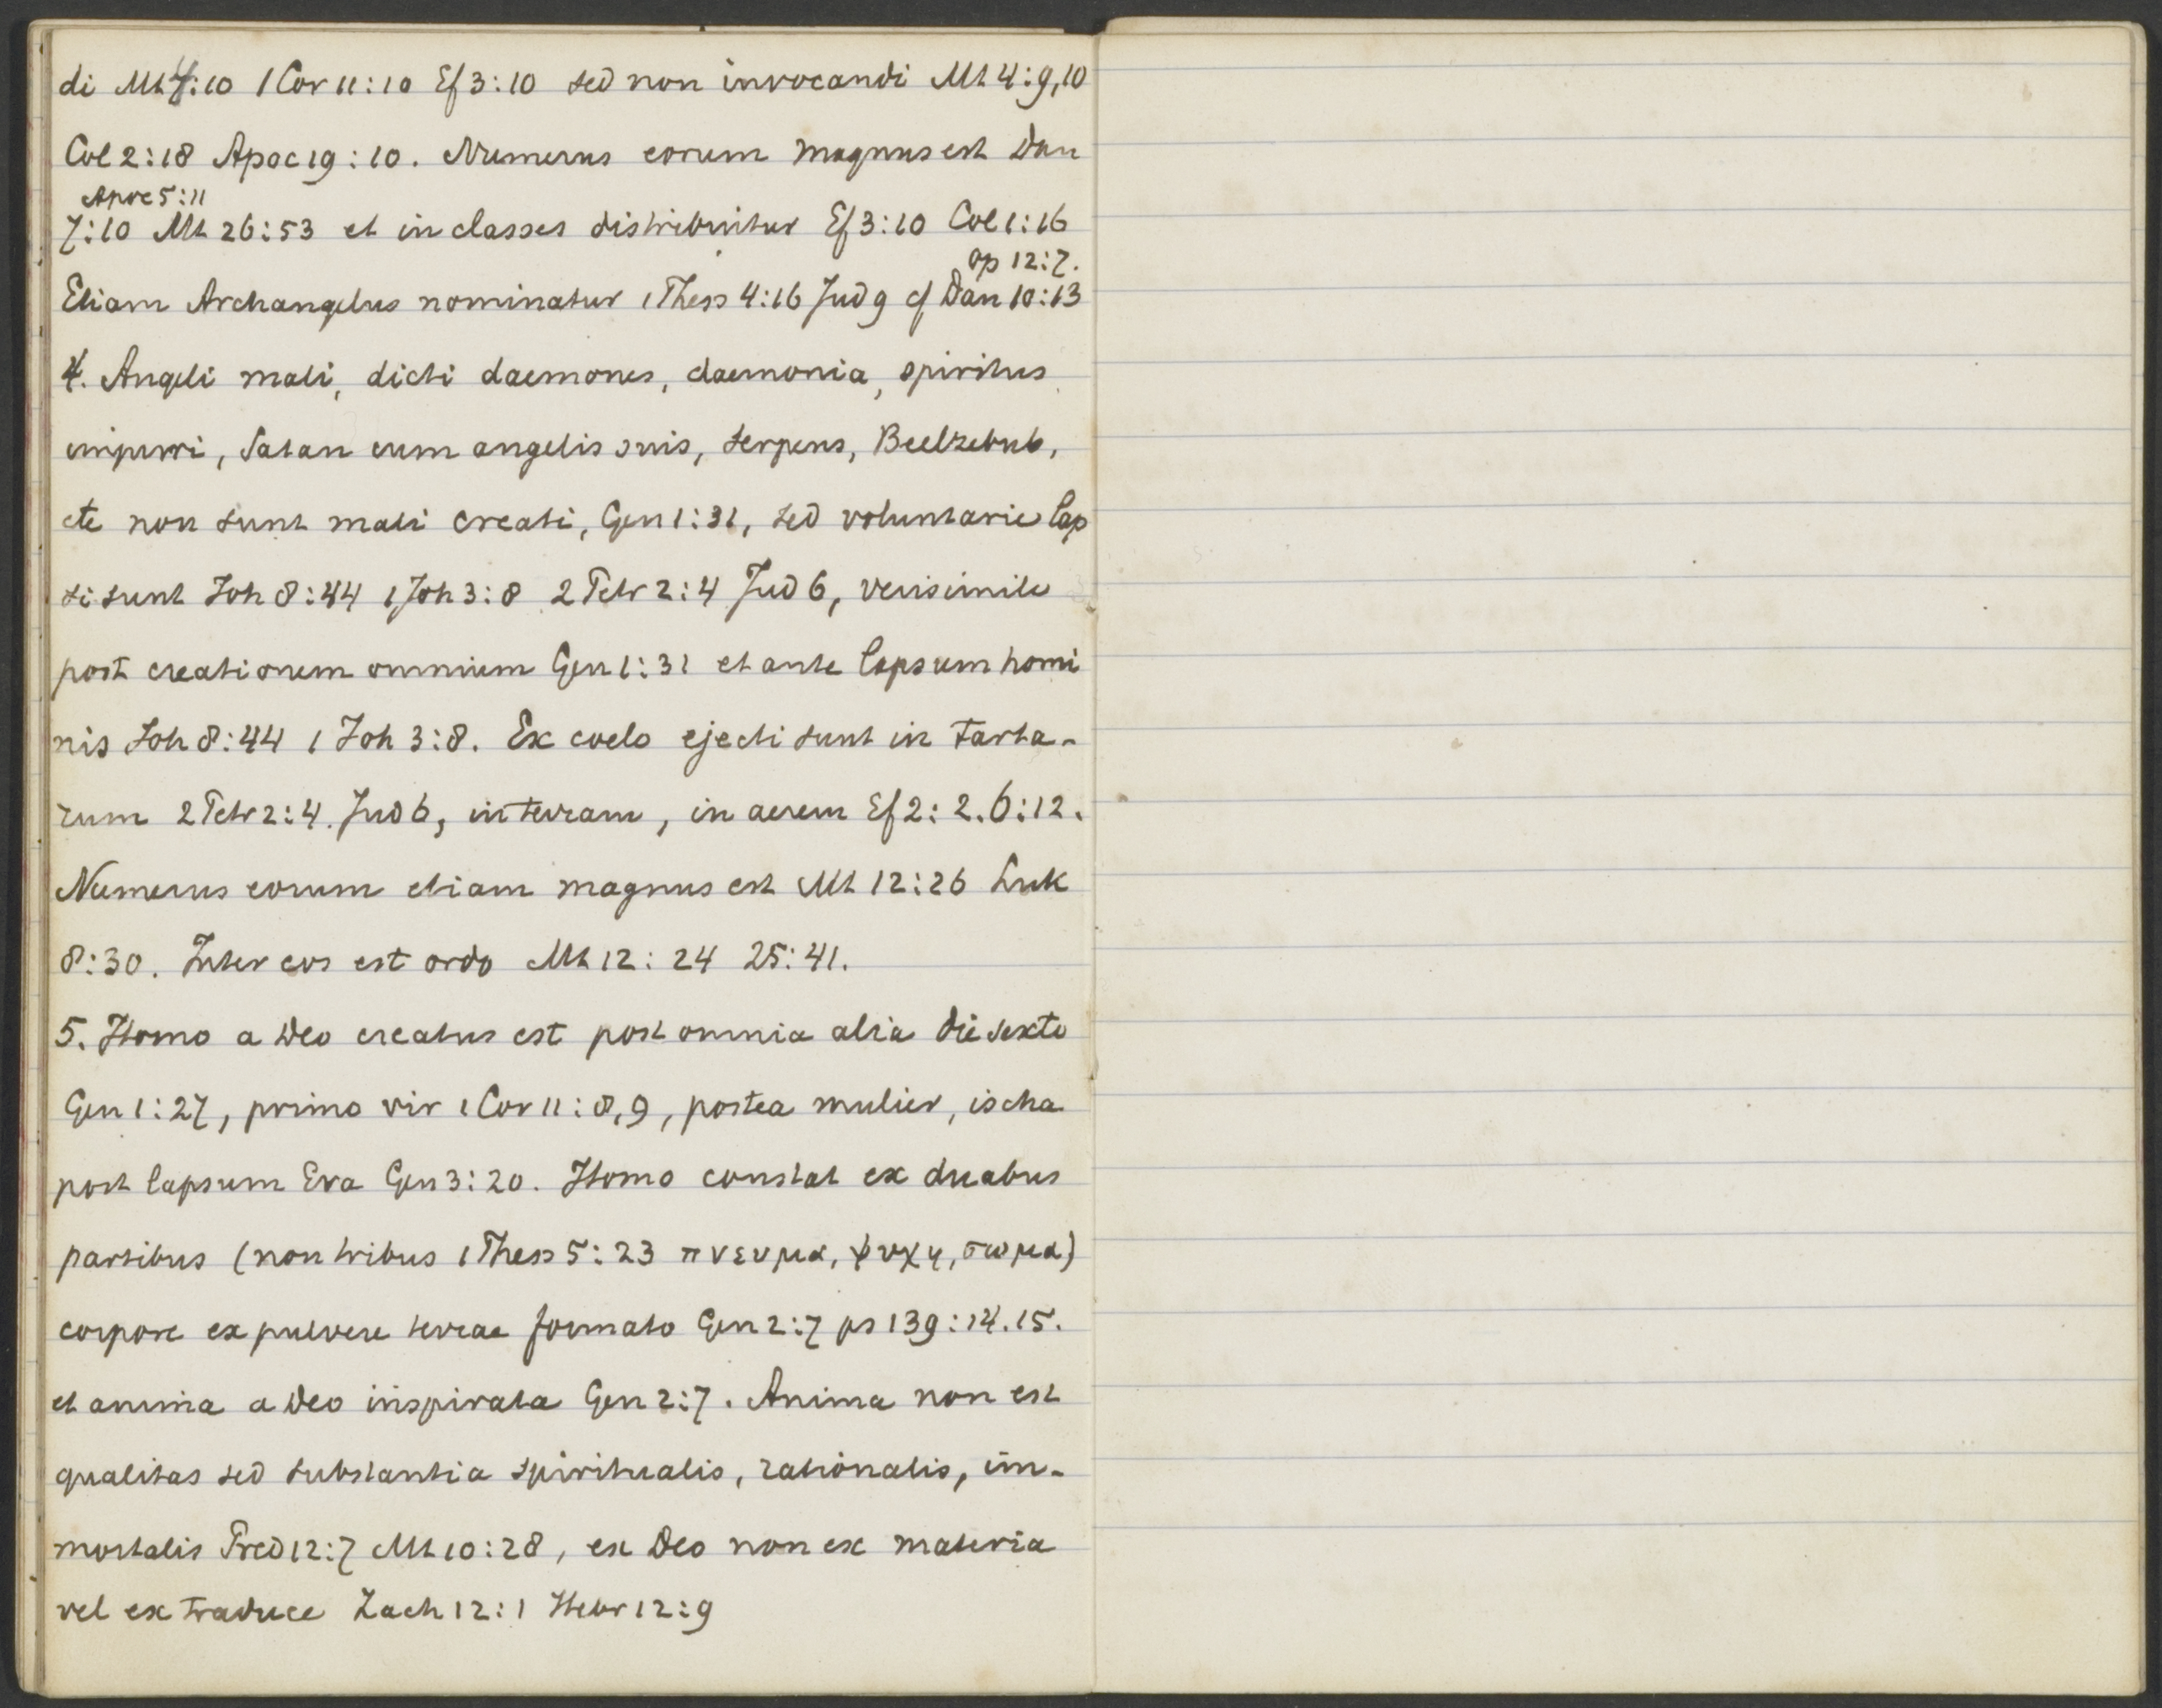 di Mt 4:10 1 Cor 11:10 Ef 3:10 sed non invocandi Mt 4:9,10
Col 2:18 Apoc 19:10. Numerus eorum magnus est Dan
Apoc 5:11
7:10 Mt 26:53 et in classes distribuitur Ef 3:10 Col 1:16
ap 12:7.
Etiam Archangelus nominatur 1 Thess 4:16 Jud 9 cf Dan 10:13
4. Angeli mali, dicti daemones, daemonia, spiritus
impuri, Satan cum angelis suis, serpens, Beelzebub,
etc non sunt mali creati, Gen 1:31, sed voluntarie lap
si sunt Joh 8:44 1 Joh 3:8 2 Petr 2:4 Jud 6, verisimile
post creationem omnium Gen 1:31 et ante lapsum homi
nis Joh 8:44 1 Joh 3:8. Ex coelo ejecti sunt in tarta-
rum 2 Petr 2:4. Jud 6, in terram, in aerem Ef 2:2. 6:12.
Numerus eorum etiam magnus est Mt 12:26 Luk
8:30. Inter eos est ordo Mt 12:24 25:41.
5. Homo a Deo creatus est post omnia alia die sexto
Gen 1:27, primo vir 1 Cor 11:8,9, postea mulier, ischa
post lapsum Eva Gen 3:20. Homo constat ex duabus
partibus (non tribus 1 Thess 5:23 πνευμα, ψυχη, σωμα)
corpore ex pulvere terrae formato Gen 2:7 ps 139:14.15.
et anima a Deo inspirata Gen 2:7. Anima non est
qualitas sed substantia spiritualis, rationalis, im-
mortalis Pred 12:7 Mt 10:28, ex Deo non ex materia
vel ex traduce Zach 12:1 Hebr 12:9